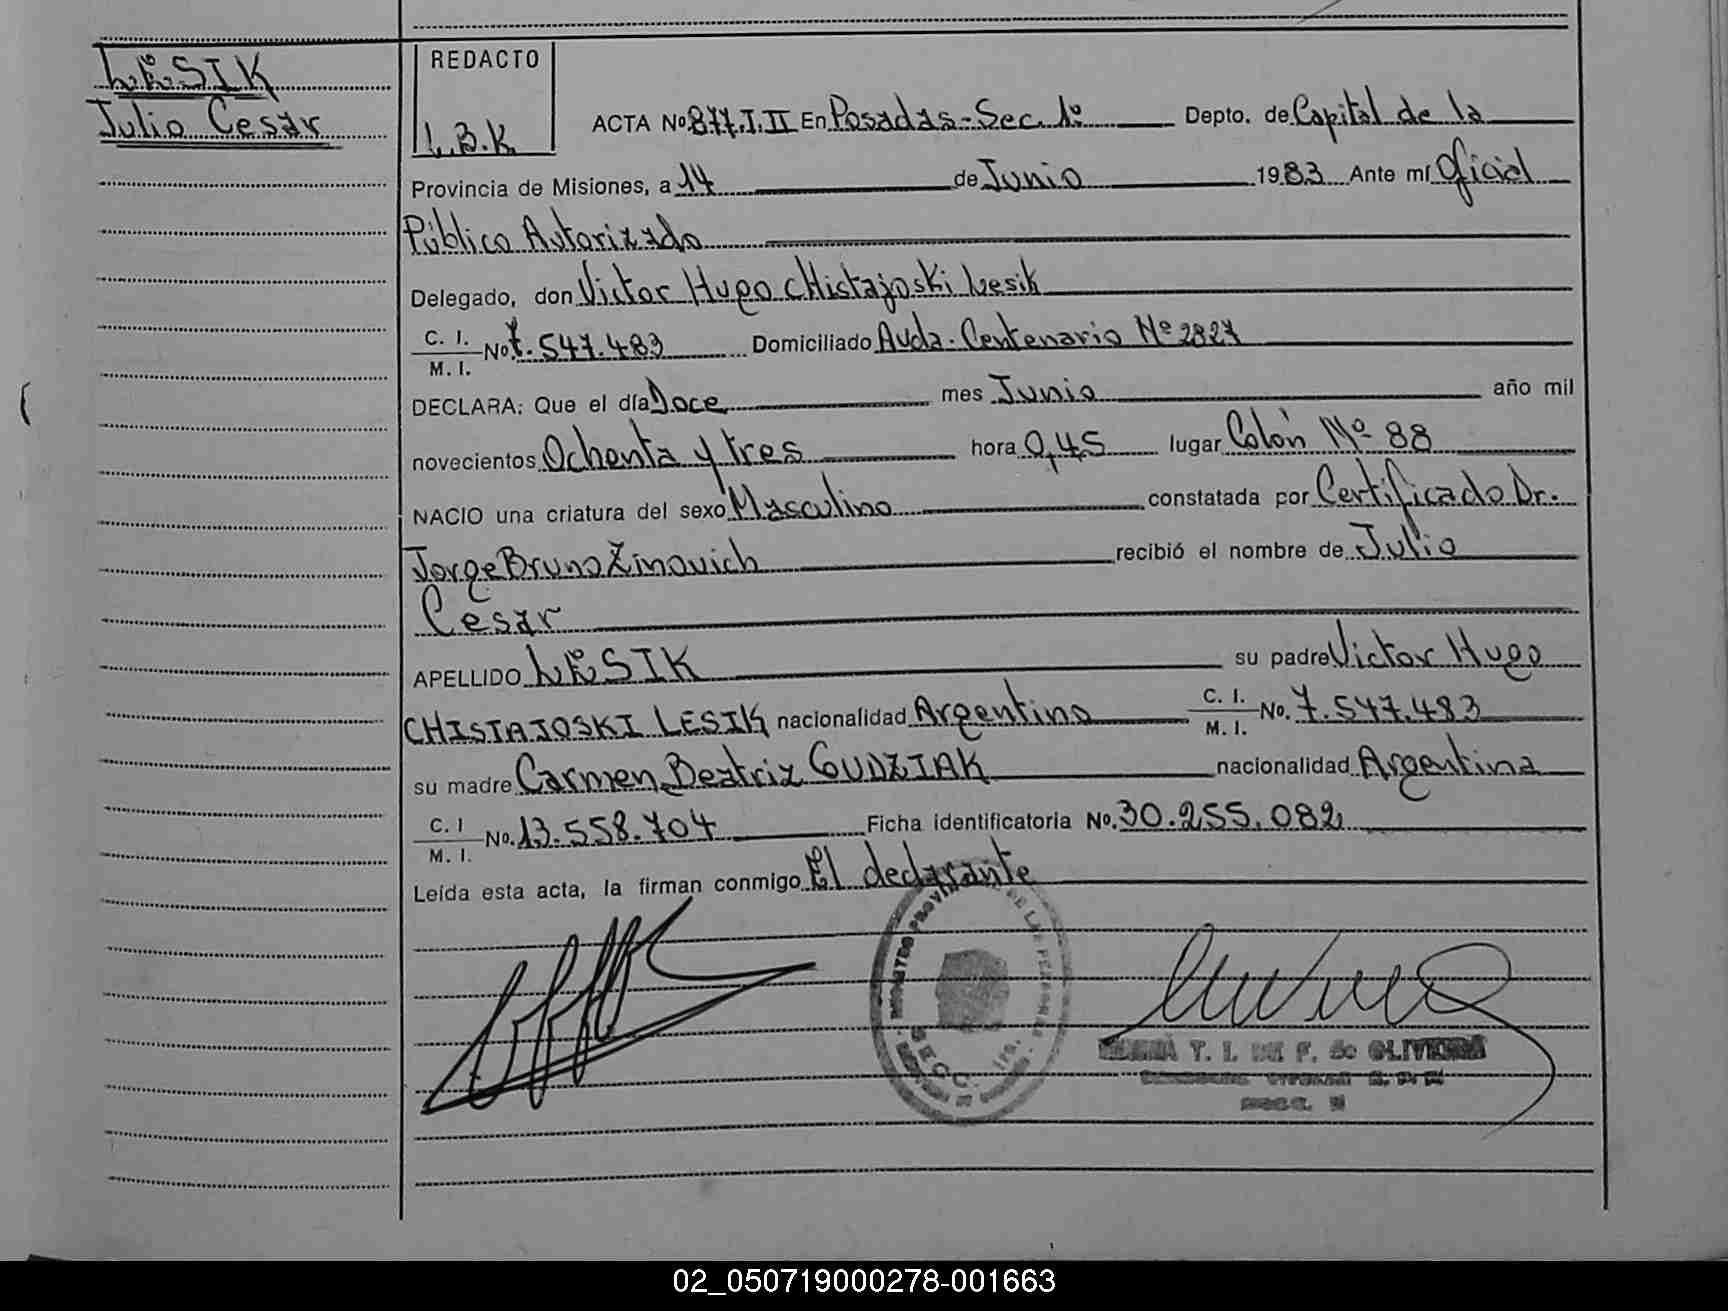 LESIK
Julio Cesar
REDACTO
L.B.K.
ACTA No 877.I.II En Posadas-Sec. 1º Depto. de Capital de la
Provincia de Misiones, a 14 de Junio 1983 Ante mí Oficial
Público Autorizado
Delegado, don Victor Hugo CHistajoski Lesik
C. I. M. I. No 7.547.483 Domiciliado Avda. Centenario Nº 2827
DECLARA: Que el día Doce mes Junio año mil
novecientos Ochenta y tres hora 0,45 lugar Colón Nº 88
NACIO una criatura del sexo Masculino constatada por Certificado Dr.
Jorge Bruno Zinovich recibió el nombre de Julio
Cesar
APELLIDO LESIK su padre Victor Hugo
CHISTAJOSKI LESIK nacionalidad Argentino C. I. M. I. No. 7.547.483
su madre Carmen Beatriz GUDZIAK nacionalidad Argentina
C. I M. I. No. 13.558.704 Ficha identificatoria No. 30.255.082
Leída esta acta, la firman conmigo El declarante
PROV DE LAS PERSONAS
SECC. 1ra.
T. I. DE F. de OLIVEIRA
SECC.
02_050719000278-001663